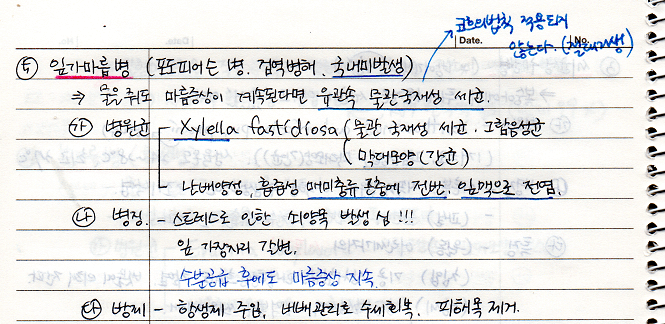 코흐의법칙 적용되지
Date. 않는다. (절대기생) No.
㉤ 잎가마름병 (포도피어슨 병, 검역병해, 국내미발생)
⇒ 물을 줘도 마름증상이 계속된다면 유관속 물관국재성 세균.
㉮ 병원균 Xylella fastidiosa (물관 국재성 세균. 그람음성균
(막대모양 (간균)
난배양성, 흡즙성 매미충류 곤충에 전반. 잎맥으로 전염.
㉯ 병징 - 스트레스로 인한 쇠약목 발생 심 !!!
잎 가장자리 갈변,
수분공급 후에도 마름증상 지속
㉰ 방제 - 항생제 주입, 비배관리로 수세회복, 피해목 제거.